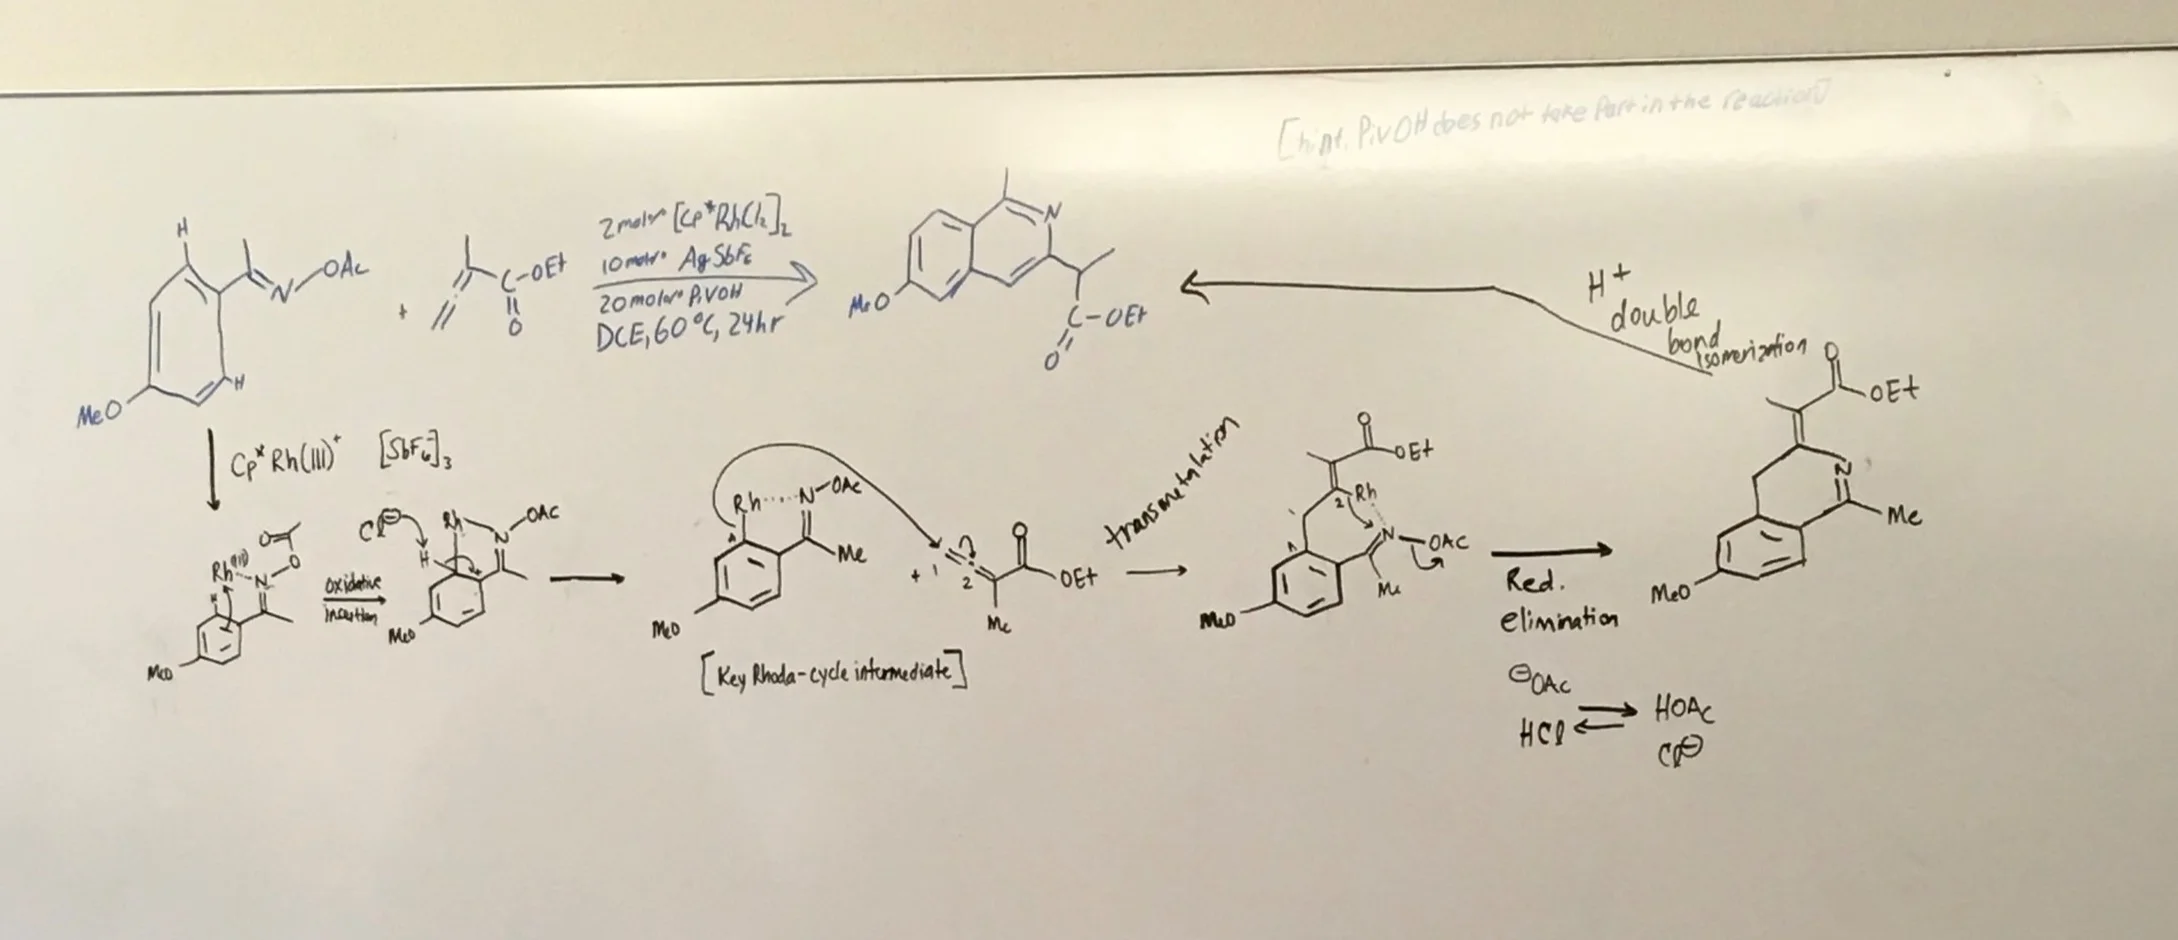 [hint. PivOH does not take Part in the reaction]
H
OAc
N
H
MeO
+
C-OEt
O
2 mol% [Cp*RhCl2]2
10 mol% AgSbF6
20 mol% PivOH
DCE, 60°C, 24hr
N
MeO
C-OEt
O
H+
double
bond
isomerization
Cp*Rh(III)+ [SbF6]3
O
O
Rh(III)
N
H
MeO
oxidative
insertion
Cl⊖
Rh
N
OAC
H
MeO
Rh N-OAc
Me
MeO
[Key Rhoda-cycle intermediate]
+ 1
2
O
OEt
Me
transmetalation
O
OEt
2
Rh
N
OAC
Me
MeO
Red.
elimination
⊖OAc
HCl
HOAc
Cl⊖
O
OEt
N
Me
MeO